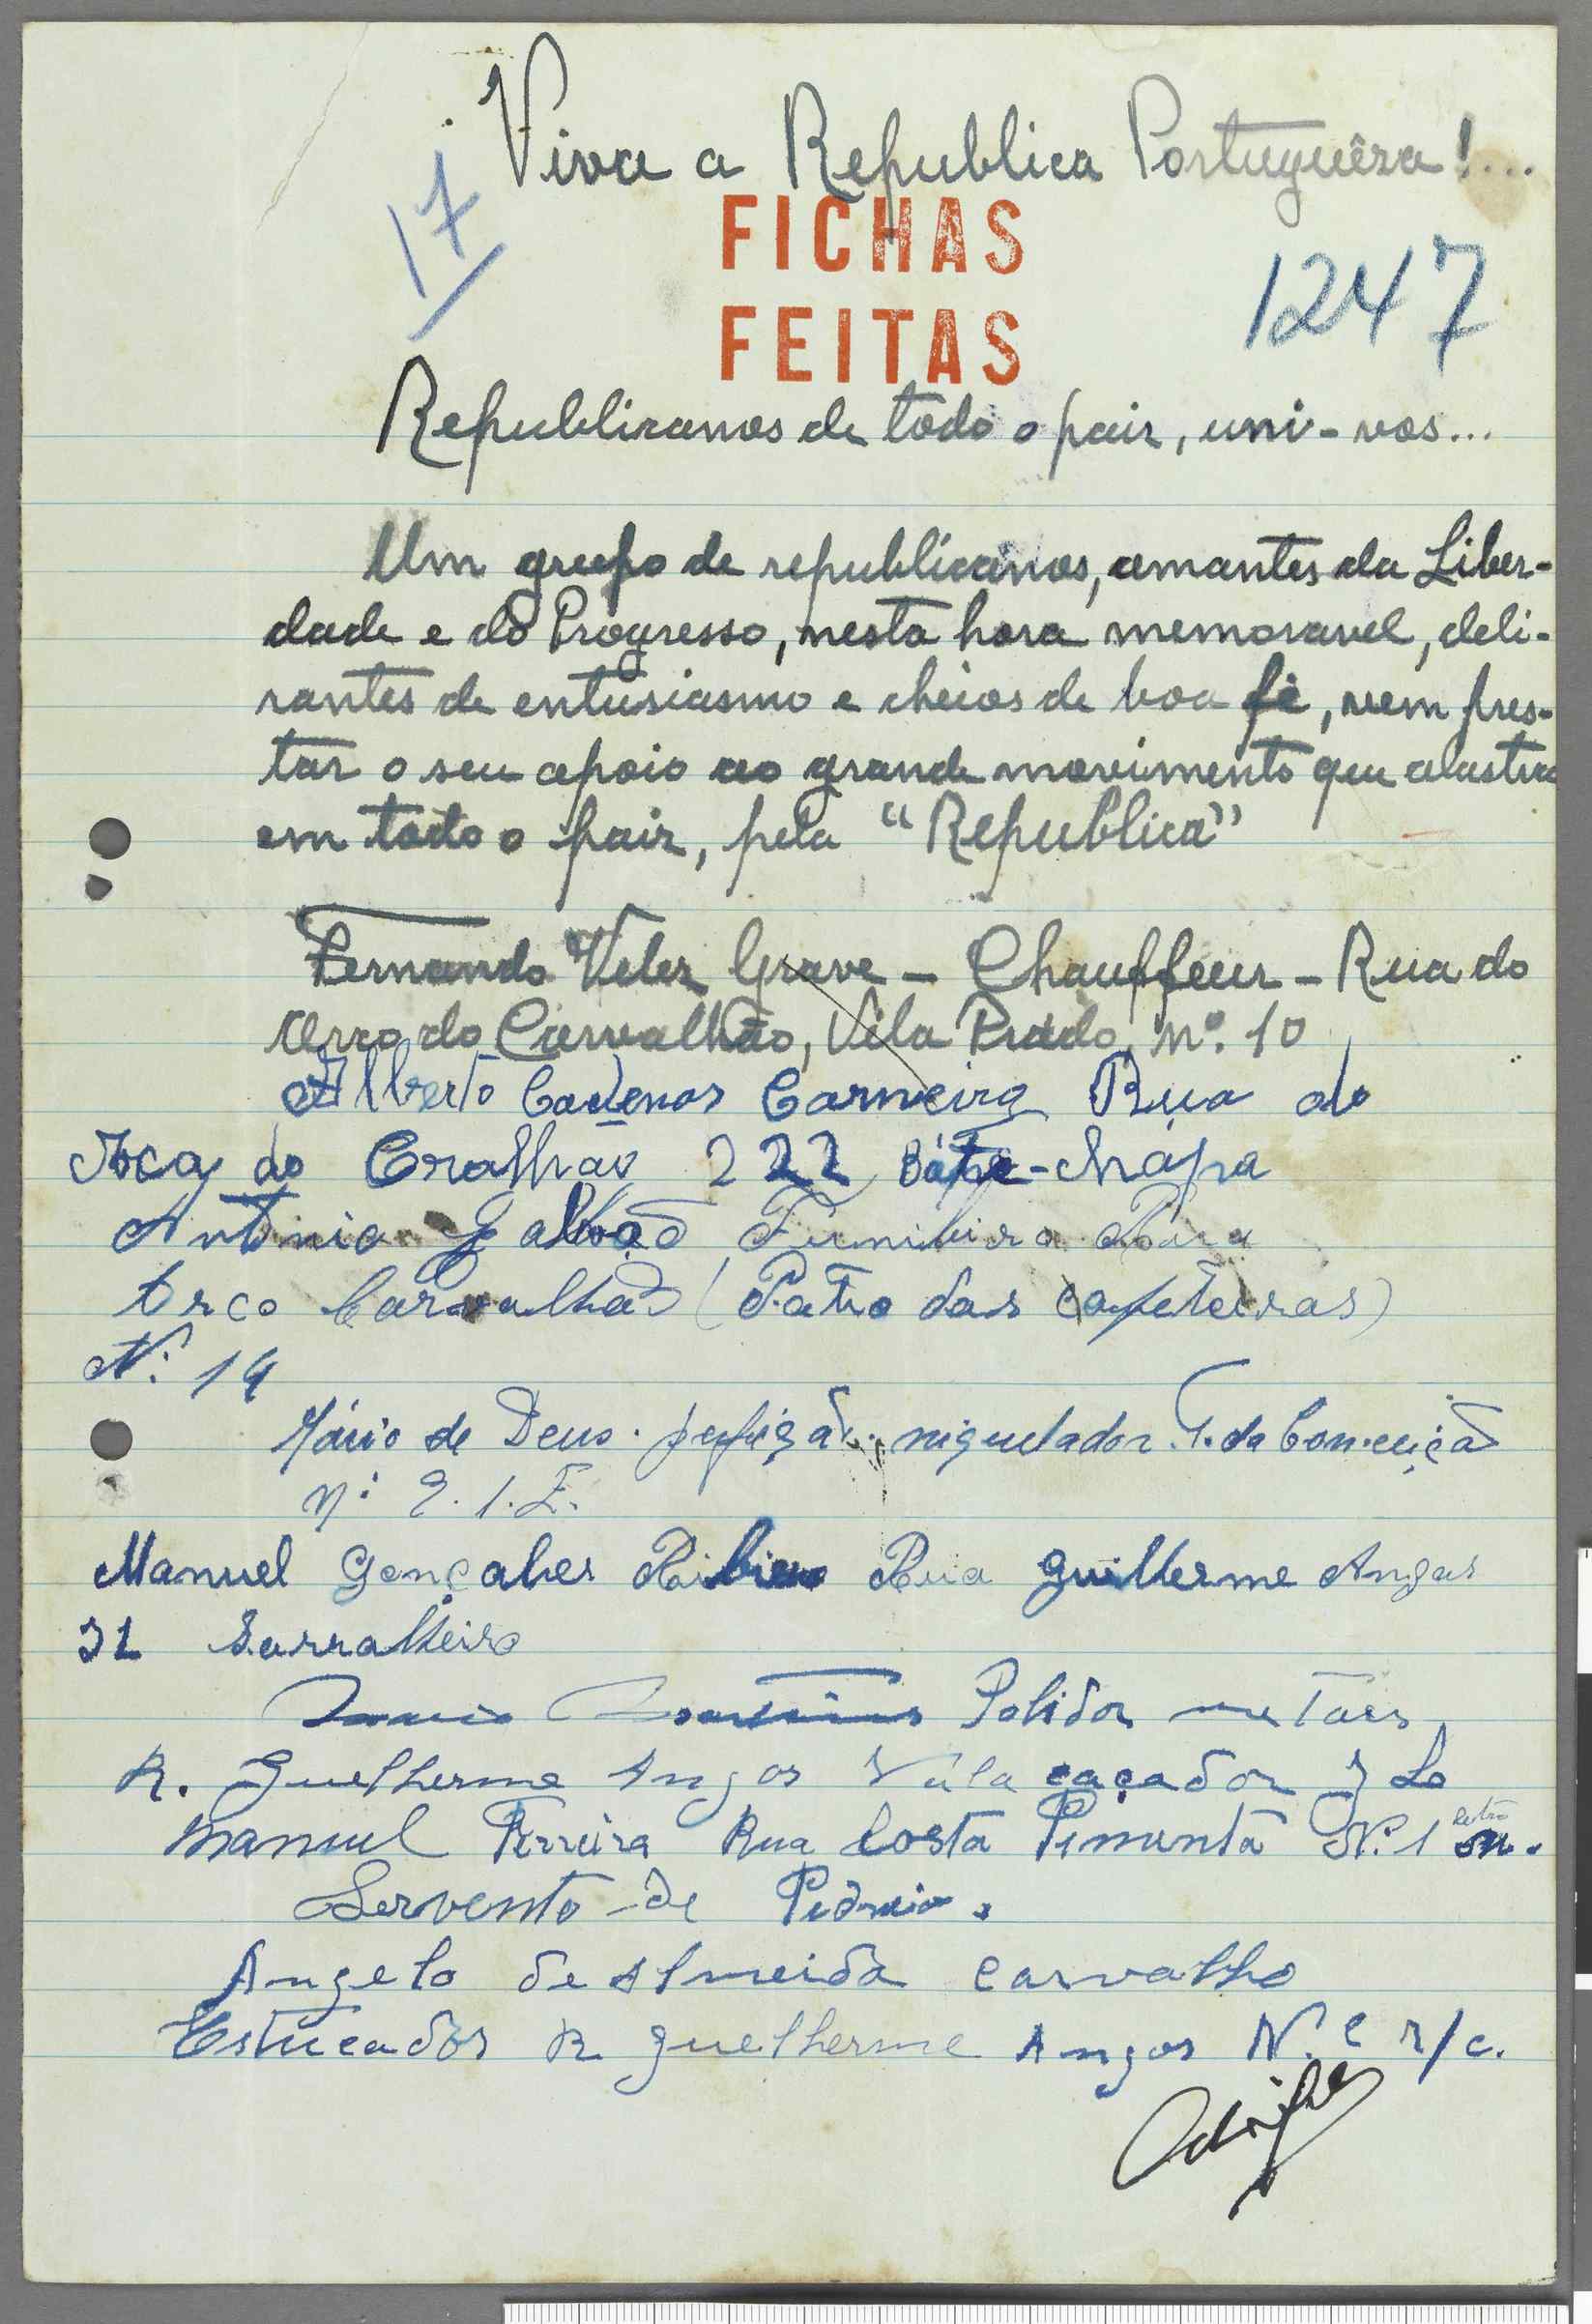 Viva a Republica Portuguêza!...
17
FICHAS
FEITAS
1247
Republicanos de todo o paiz, uni-vos...
Um grupo de republicanos, amantes da Liber-
dade e do Progresso, nesta hora memoravel, deli-
rantes de entusiasmo e cheios de boa fé, vem pres-
tar o seu apoio ao grande movimento que alastra
em todo o paiz, pela "Republica"
Fernando Velez Grave - Chauffeur - Rua do
Arco do Carvalhão, Vila Prado, nº. 10
Alberto Carneiro Rua do
do 222 Bate-chapa
Antonio Galvão Rua
Arco Carvalhão (Patio das cafeteiras)
Nº 14
Mário de Deus niquelador T. da Conceição
Nº
Manuel Gonçalves Ribeiro Rua Guilherme Anjos
31 Sarralheiro
Polidor metais
R. Guelherme Anjos Vila caçador
Manuel Ferreira Rua Costa Pimenta Nº 1 letra M.
Servente de Pedreiro.
Angelo de Almeida Carvalho
Estucador R Guelherme Anjos N. r/c.